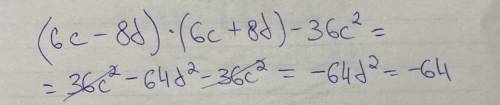 (6c - 8d) · (6c + 8d) - 36c² =
= 36c² - 64d² - 36c² = -64d² = -64